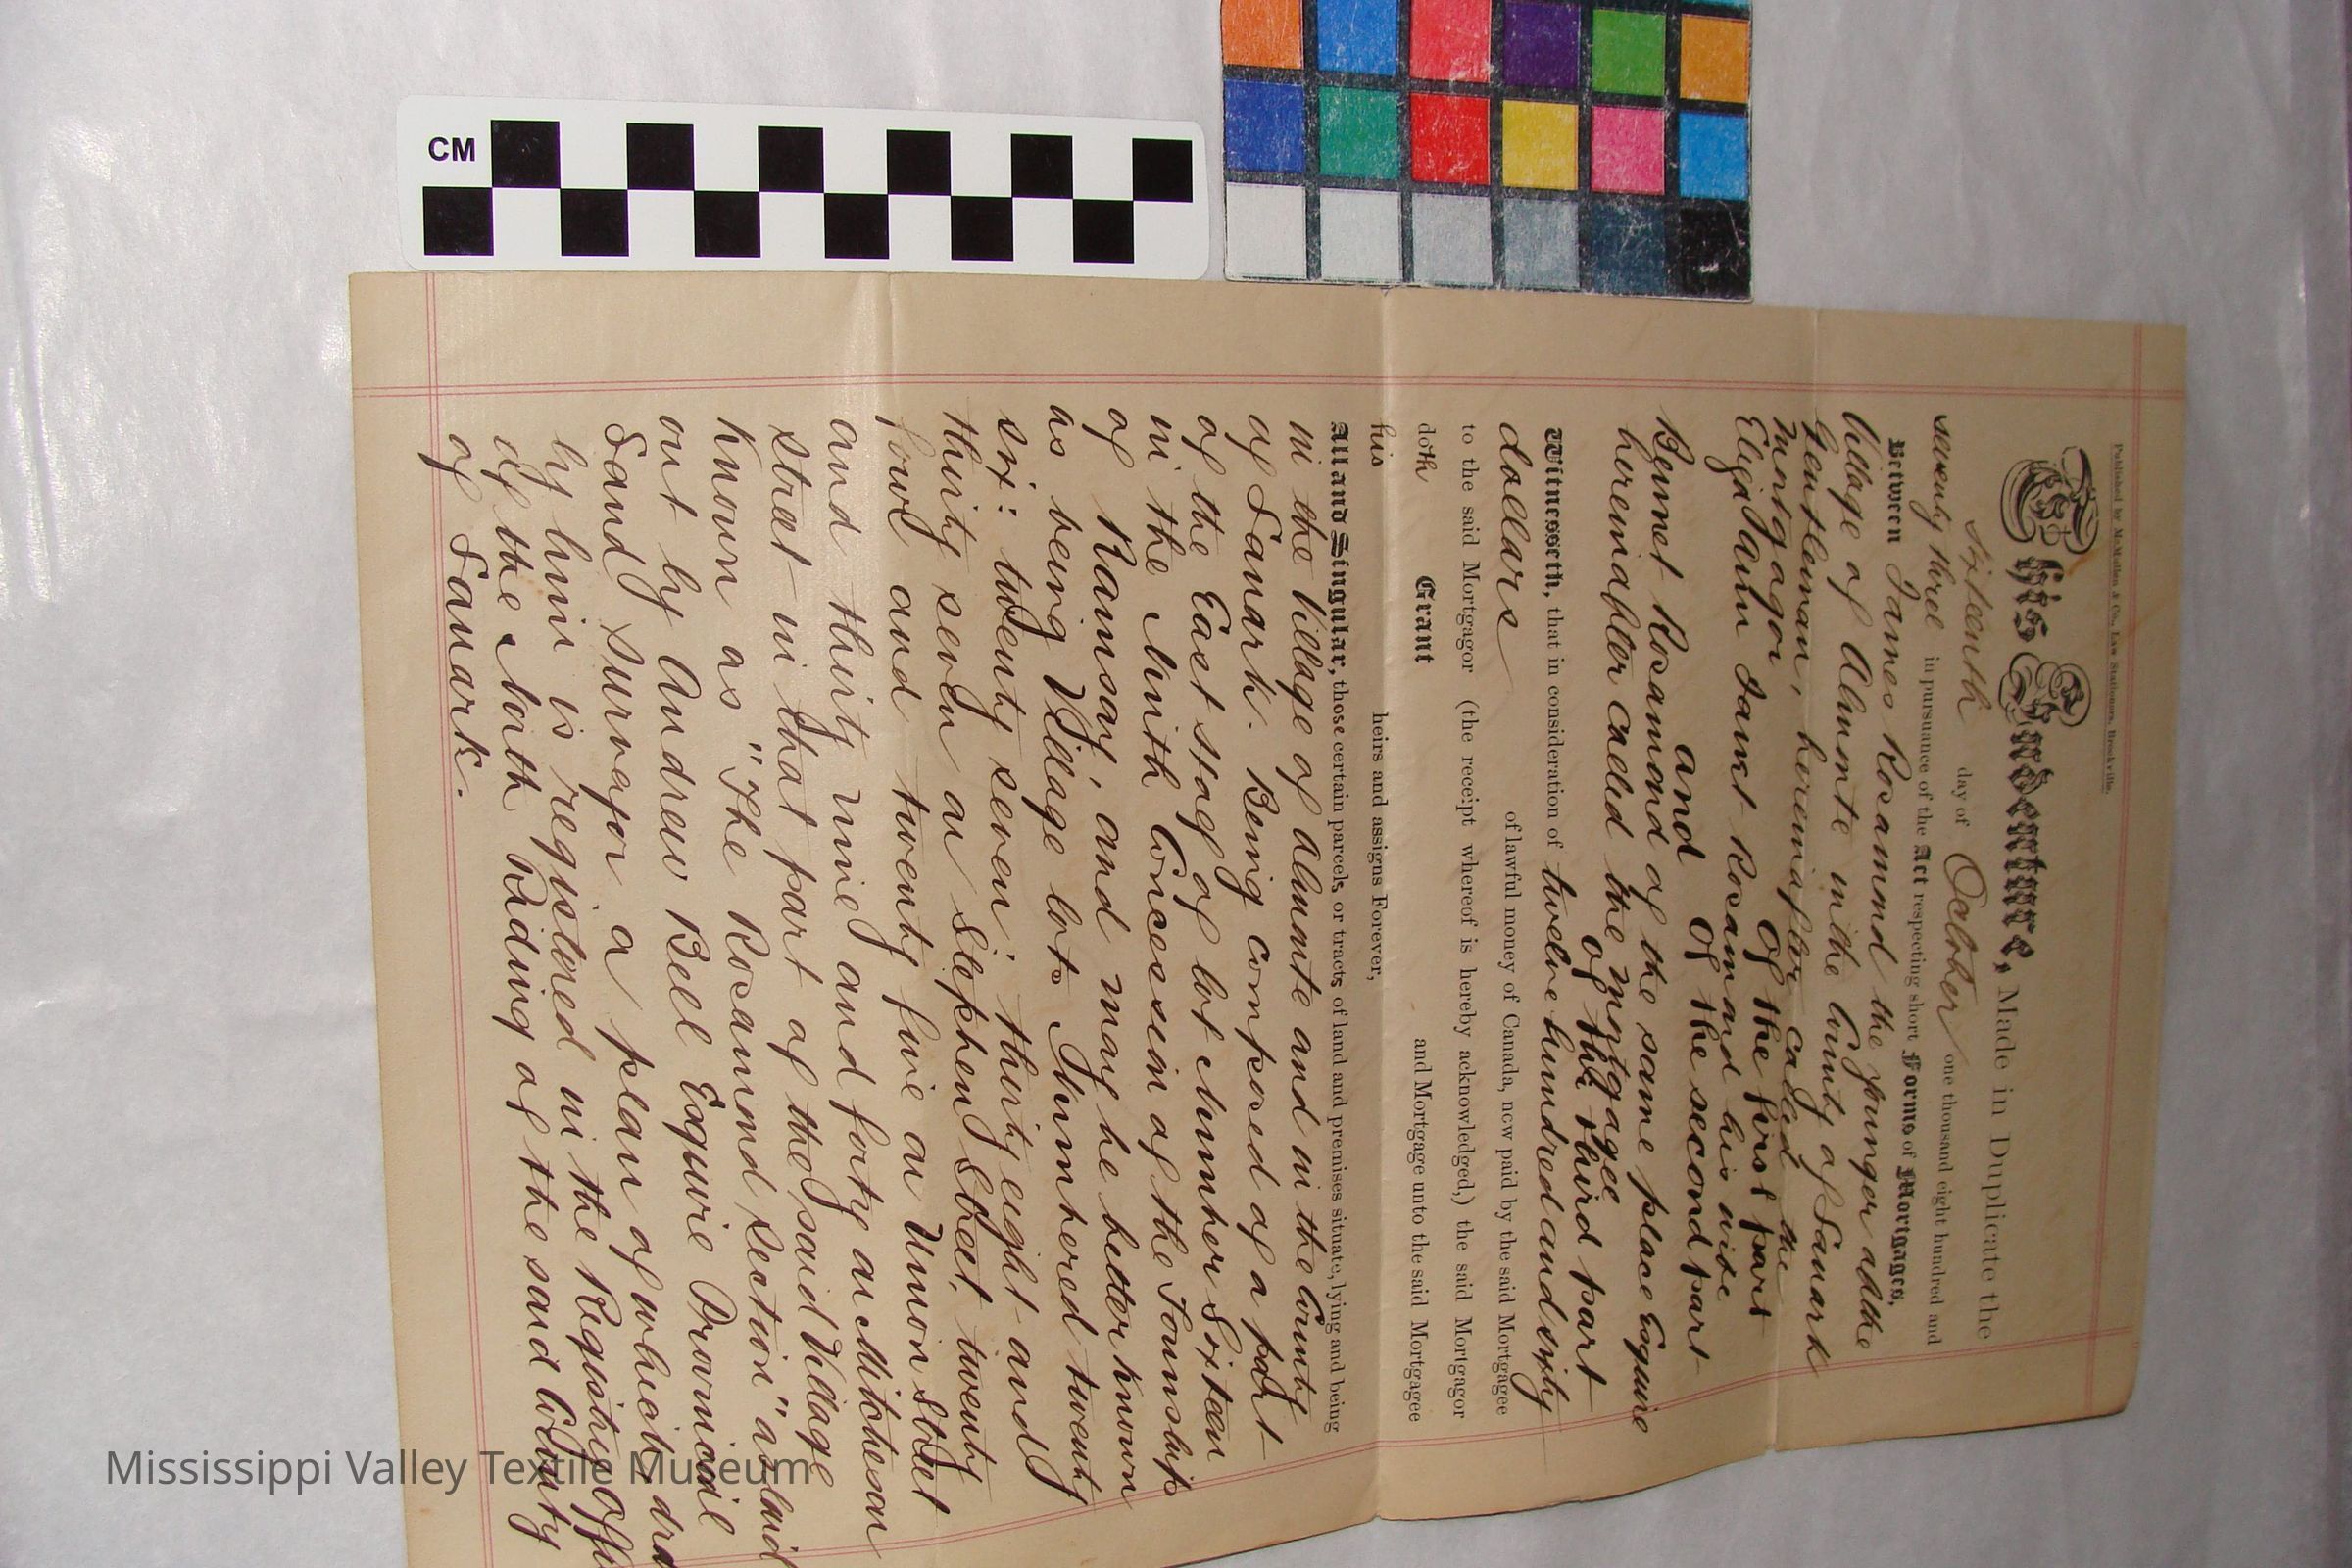 CM
Published by McMullen & Co., Law Stationers, Brockville.
This Indenture, Made in Duplicate the
sixteenth day of October one thousand eight hundred and
seventy three in pursuance of the Act respecting short Forms of Mortgages,
Between James Rosamund the younger of the
Village of Almonte in the County of Lanark
Gentleman, hereinafter called the
Mortgagor Of the first part
Eliza Ann Janet Rosamond his wife
Of the second part
and
Bennet Rosamond of the same place Esquire
hereinafter called the Mortgagee
Of the third part
Witnesseth, that in consideration of twelve hundred and sixty
dollars of lawful money of Canada, now paid by the said Mortgagee
to the said Mortgagor (the receipt whereof is hereby acknowledged,) the said Mortgagor
doth Grant and Mortgage unto the said Mortgagee
his heirs and assigns Forever,
All and Singular, those certain parcels or tracts of land and premises situate, lying and being
in the Village of Almonte and in the County
of Lanark. Being composed of a part
of the East half of lot Number Sixteen
in the Ninth Concession of the Township
of Ramsay, and may be better known
as being Village lots Numbered twenty
six: twenty seven: thirty eight and
thirty seven on Stephen Street, twenty
four and twenty five on Union Street
and thirty nine and forty on Mitcheson
street in that part of the said Village
Known as "The Rosamond Section" as laid
out by Andrew Bell Esquire Provincial
Land Surveyor a plan of which dra
by him is registered in the Registry Offi
of the North Riding of the said County
of Lanark.
Mississippi Valley Textile Museum